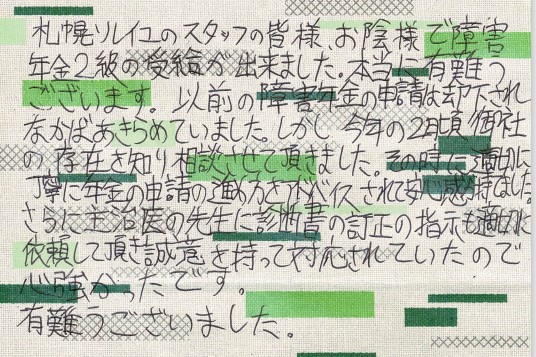 札幌ソレイユのスタッフの皆様、お陰様で障害
年金2級の受給が出来ました。本当に有難う
ございます。以前の障害年金の申請は却下され
なかばあきらめていました。しかし、今年の2月頃御社
の存在を知り相談させて頂きました。その時に適切に
丁寧に年金の申請の進め方をアドバイスされて安心感が持てました
さらに主治医の先生に診断書の訂正の指示も適切に
依頼して頂き誠意を持って対応されていたので
心強かったです。
有難うございました。